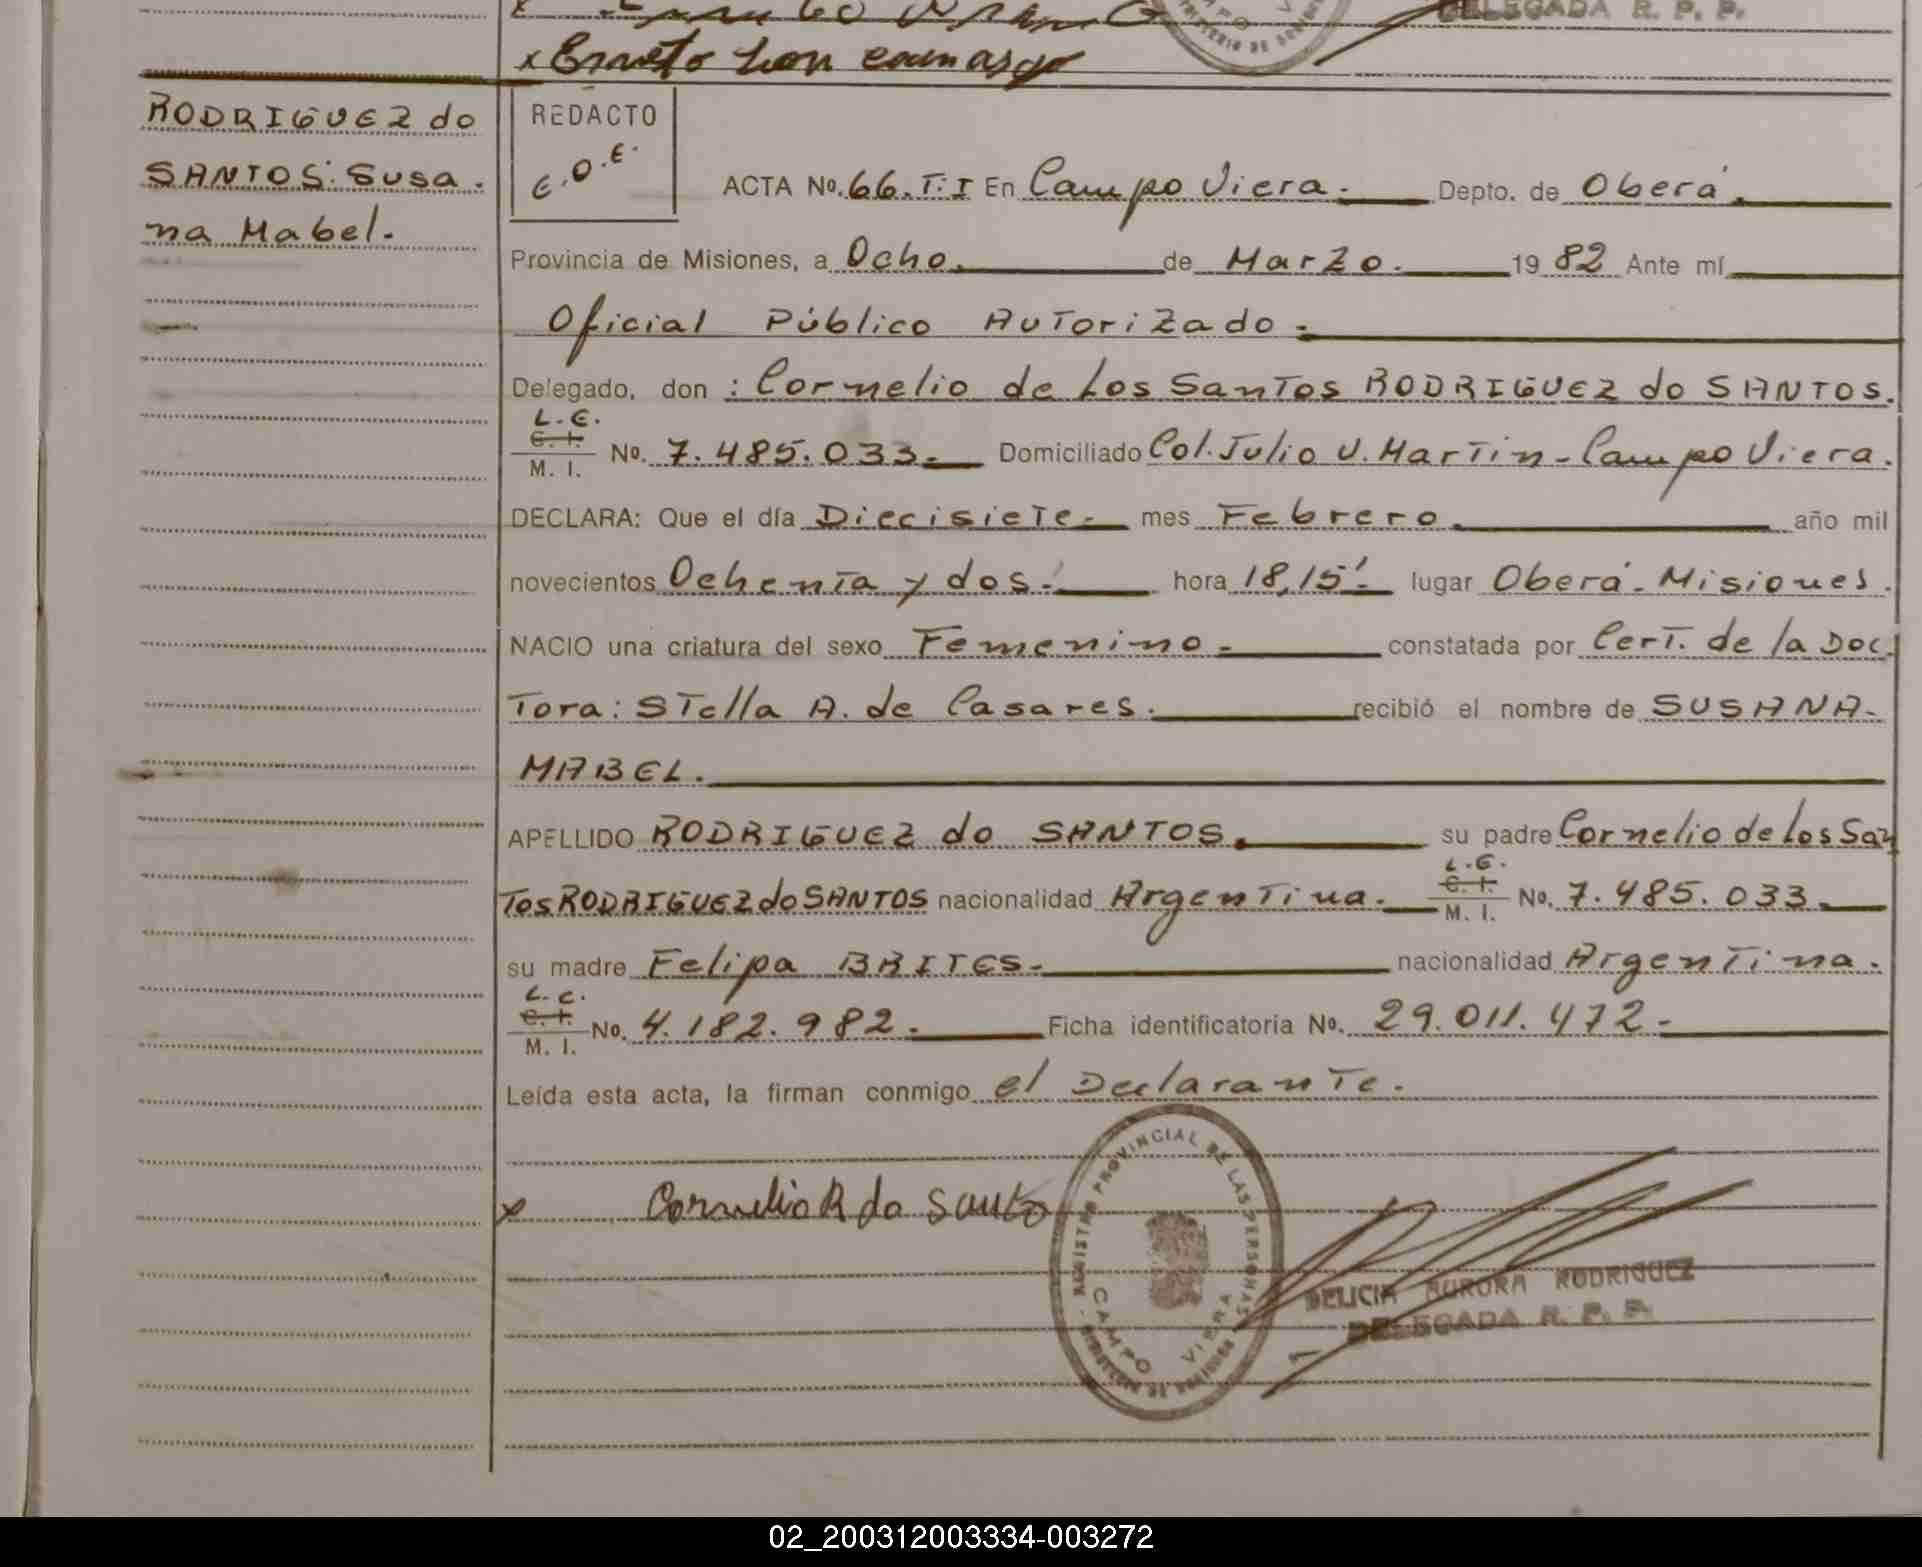 DELEGADA R. P. P.
x Ernesto Lon camargo
RODRIGUEZ do
SANTOS: Susa.
na Mabel.
REDACTO
E.O.E.
ACTA No. 66. T: I En Campo Viera.- Depto. de Oberá.
Provincia de Misiones, a Ocho. de Marzo. 19 82 Ante mí
Oficial Público AuTorizado.
Delegado, don : Cornelio de Los SanTos RODRIGUEZ do SANTOS.
L. E.
C. I.
M. I.
No. 7.485.033.- Domiciliado Col. Julio U. MarTin-Campo Viera.
DECLARA: Que el día DiecisieTe.- mes Febrero. año mil
novecientos OchenTa y dos.- hora 18,15'.- lugar Oberá-Misiones.
NACIO una criatura del sexo Femenino.- constatada por CerT. de la Doc.
Tora: STella A. de Casares.- recibió el nombre de SUSANA-
MABEL.
APELLIDO RODRIGUEZ do SANTOS. su padre Cornelio de Los San
Tos RODRIGUEZ do SANTOS nacionalidad ArgenTina.-
L. E.
C. I.
M. I.
No. 7.485.033.
su madre Felipa BRITES.- nacionalidad ArgenTina.
L. C.
C. I.
M. I.
No. 4.182.982.- Ficha identificatoria No. 29.011.472-
Leída esta acta, la firman conmigo el DeclaranTe.
x Cornelio R do Santo
REGISTRO PROVINCIAL DE LAS PERSONAS
CAMPO VIERA
DELICIA AURORA RODRIGUEZ
DELEGADA R. P. P.
02_200312003334-003272